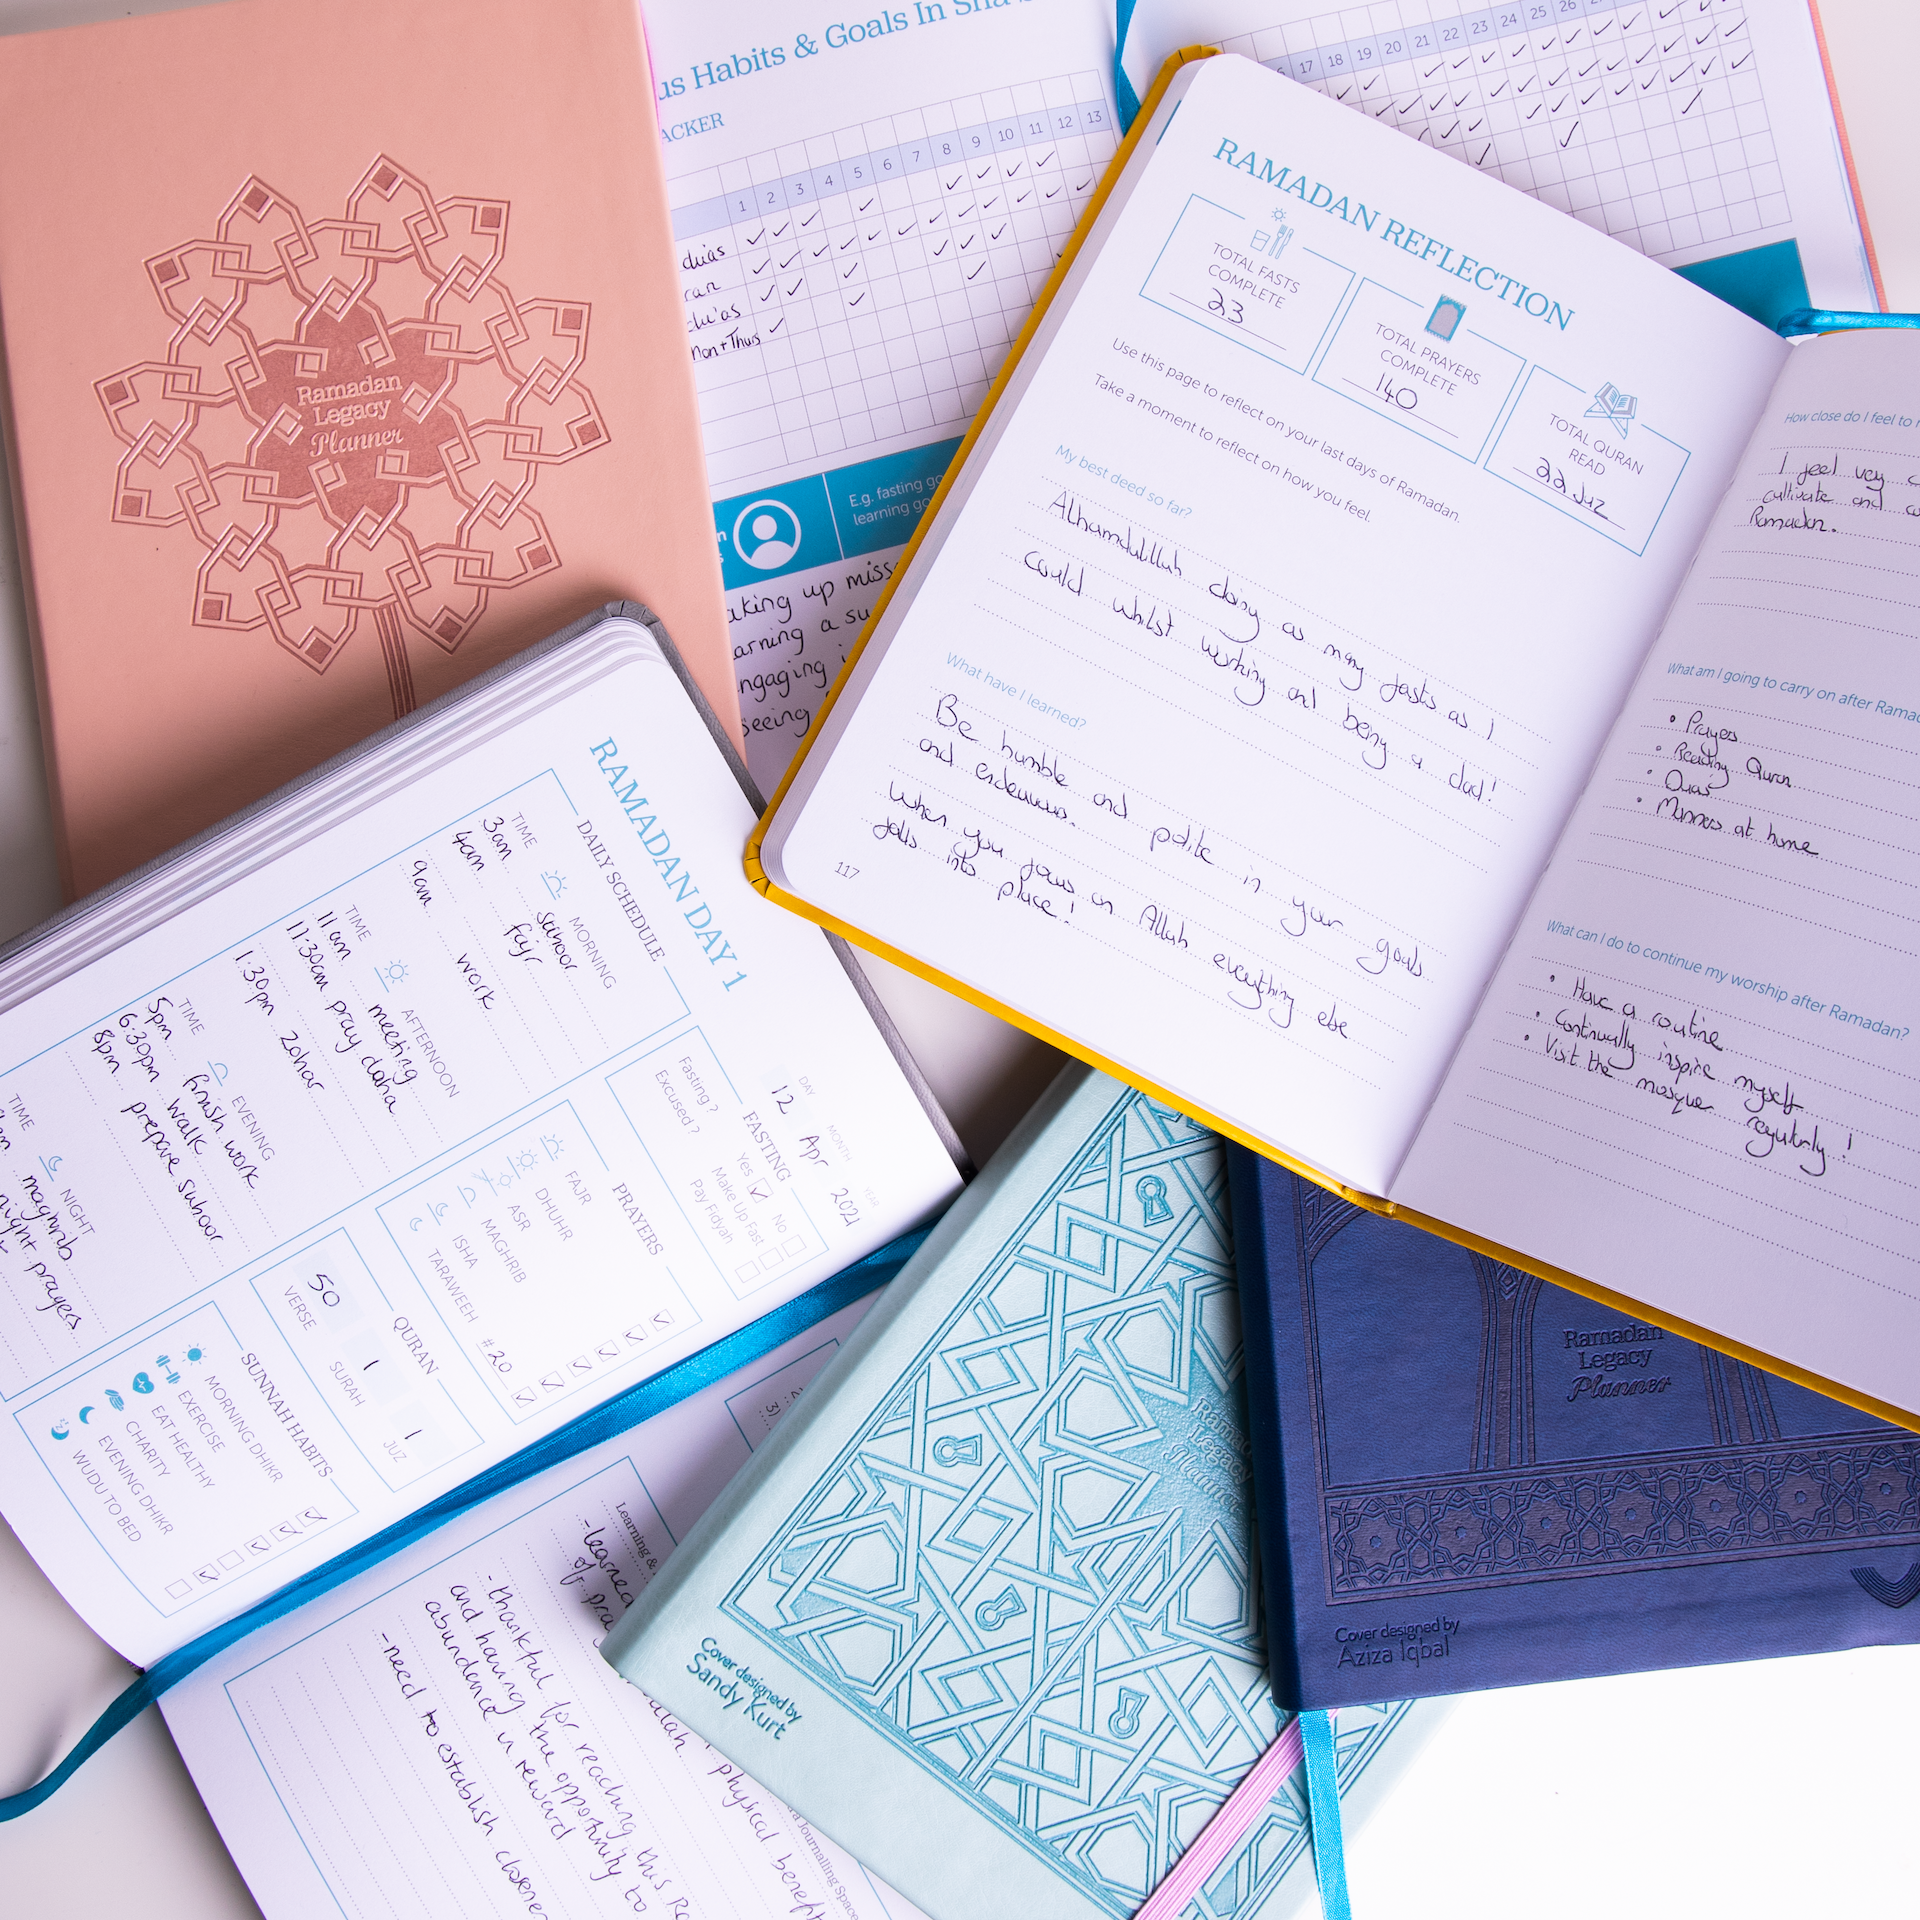 Ramadan
Legacy
Planner
Habits & Goals In
1 2 3 4 5 6 7 8 9 10 11 12 13
17 18 19 20 21 22 23 24 25 26
E.g. fasting
learning
up
a
RAMADAN REFLECTION
TOTAL FASTS
COMPLETE
23
TOTAL PRAYERS
COMPLETE
140
TOTAL QURAN
READ
22 Juz
Use this page to reflect on your last days of Ramadan.
Take a moment to reflect on how you feel.
My best deed so far?
Alhamdulillah doing as many fasts as I
could whilst working and being a dad!
What have I learned?
Be humble and polite in your goals
and endeavours.
When you focus on Allah everything else
falls into place!
117
How close do I feel to
I feel very
cultivate and
Ramadan.
What am I going to carry on after
• Prayers
• Reading Quran
• Duas
• Manners at home
What can I do to continue my worship after Ramadan?
• Have a routine
• Continually inspire myself
• Visit the mosque regularly!
RAMADAN DAY 1
DAY MONTH YEAR
12 Apr 2021
DAILY SCHEDULE
TIME MORNING
3am suhoor
4am fajr
9am work
TIME AFTERNOON
11am meeting
11:30am pray duha
1:30pm zohar
TIME EVENING
5pm finish work
6:30pm walk
8pm prepare suhoor
TIME NIGHT
maghrib
night prayers
FASTING
Fasting? Yes No
Excused? Make Up Fast
Pay Fidyah
PRAYERS
FAJR
DHUHR
ASR
MAGHRIB
ISHA
TARAWEEH #20
QURAN
50 1 1
VERSE SURAH JUZ
SUNNAH HABITS
MORNING DHIKR
EXERCISE
EAT HEALTHY
CHARITY
EVENING DHIKR
WUDU TO BED
3)
Learning &
Journalling Space
- learned
of
physical
- thankful for reaching this
and having the opportunity to
abundance in reward
- need to establish closer
Legacy
Cover designed by
Sandy Kurt
Ramadan
Legacy
Planner
Cover designed by
Aziza Iqbal